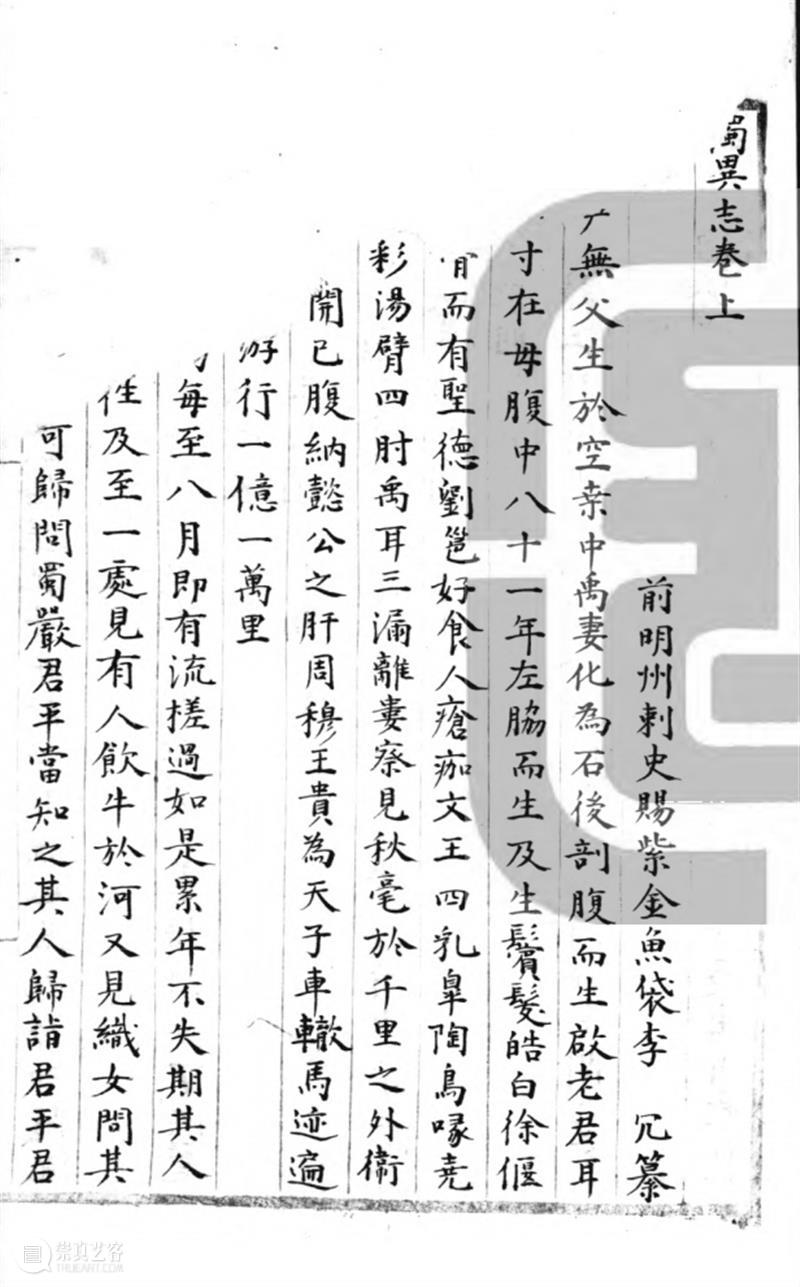 異志卷上
前明州刺史賜紫金魚袋李 冗纂
無父生於空桒中禹妻化為石後剖腹而生啟老君耳
寸在母腹中八十一年左脇而生及生鬢髮皓白徐偃
而有聖德劉邕好食人瘡痂文王四乳臯陶鳥喙堯
彩湯臂四肘禹耳三漏離婁察見秋毫於千里之外衛
開已腹納懿公之肝周穆王貴為天子車轍馬迹遍
游行一億一萬里
每至八月即有流槎過如是累年不失期其人
性及至一處見有人飲牛於河又見織女問其
可歸問蜀嚴君平當知之其人歸詣君平君
崇真艺客
TRUEART.COM